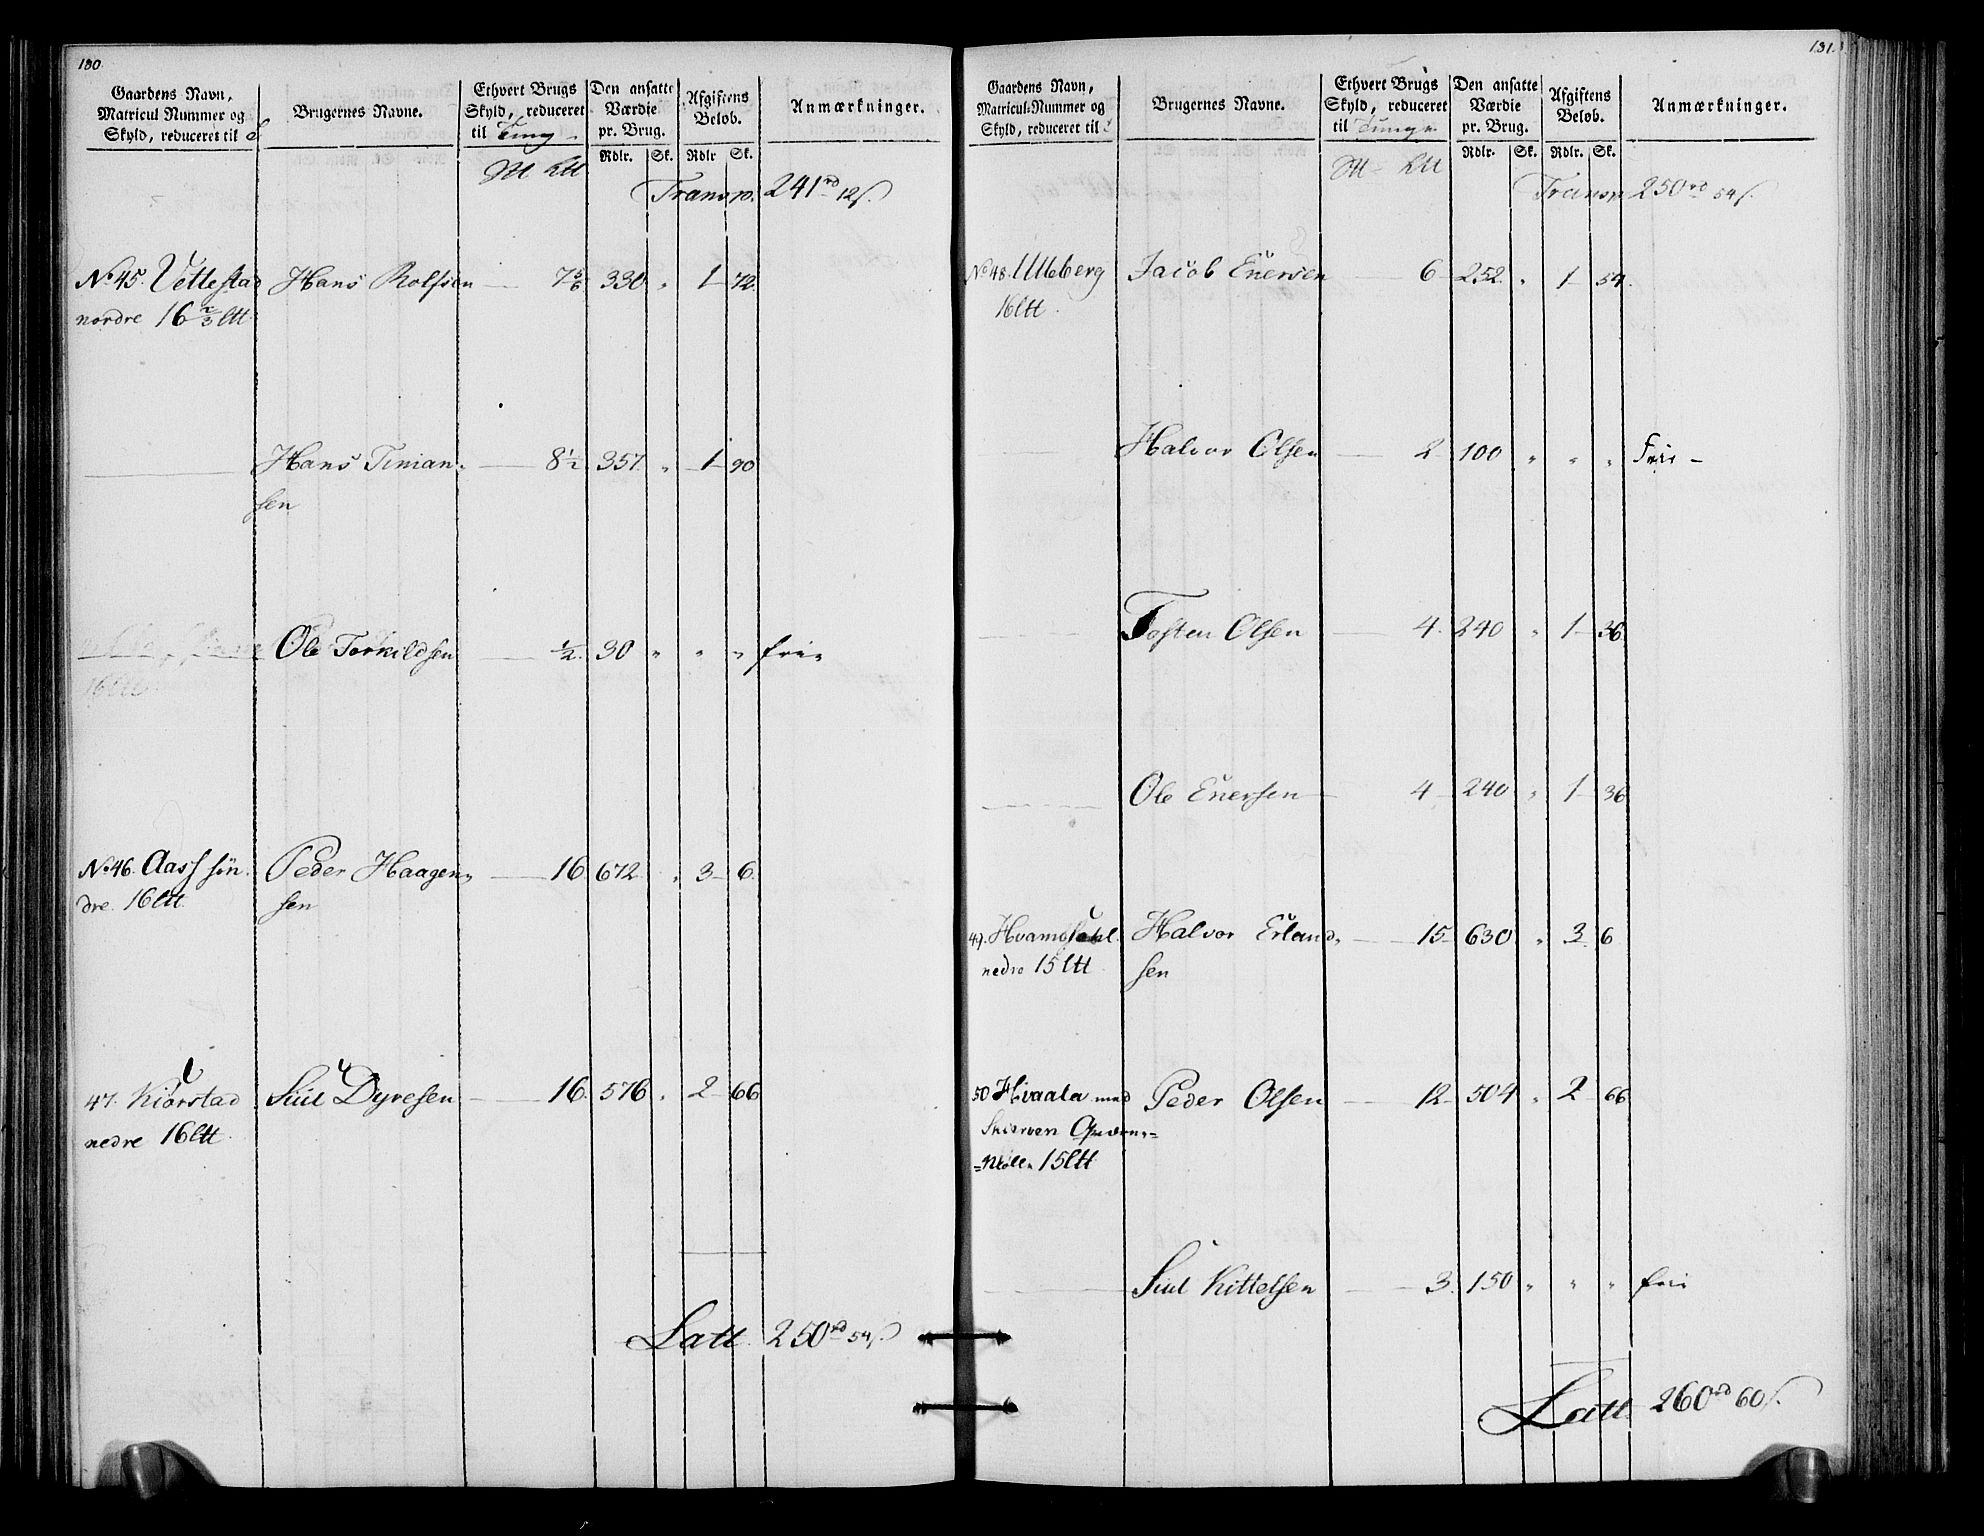 130.
Gaardens Navn, Matricul Nummer og Skyld, reduceret til
Brugernes Navne.
Ethvert Brugs Skyld, reduceret til Tung
Den ansatte Værdie pr. Brug.
Afgiftens Beløb.
Anmærkninger.
Rdlr. Sk. Rdlr Sk.
Transp. 241rd 12s.
No 45. Vettestad Hans Rolfsen 7 5/6 330 " 1 72.
nordre 16 2/3 ltt.
Hans Tinian- 8 1/2 357 " 1 90
sen
Ole Torkildsen 1/2. 30 " " " frie
16 ltt.
No 46. Aass søn- Peder Haagen- 16 672 " 3 6.
dre. 16 ltt. sen
47. Kiørstad Siul Dyresen 16. 576 " 2 66
nedre 16 ltt.
Latt. 250rd 54s.
131.
Gaardens Navn, Matricul-Nummer og Skyld, reduceret til
Brugernes Navne.
Ethvert Brugs Skyld, reduceret til Tunge
Den ansatte Værdie pr. Brug.
Afgiftens Beløb.
Anmærkninger.
Rdlr. Sk. Rdlr. Sk.
Transp 250rd 54s.
No 48. Ulleberg Jacob Enersen 6 252 " 1 54.
16 ltt.
Halvor Olsen 2 100 " " " Frie
Tosten Olsen 4. 240 " 1 36.
Ole Enersen 4 240 " 1 36
49. Halvor Erland- 15 630 " 3 6
nedre 15 ltt. sen
50 Hvaala med Peder Olsen 12 504 " 2 66
15 ltt
Siul Kittelsen 3. 150 " " " frie
Latt. 260rd 60s.